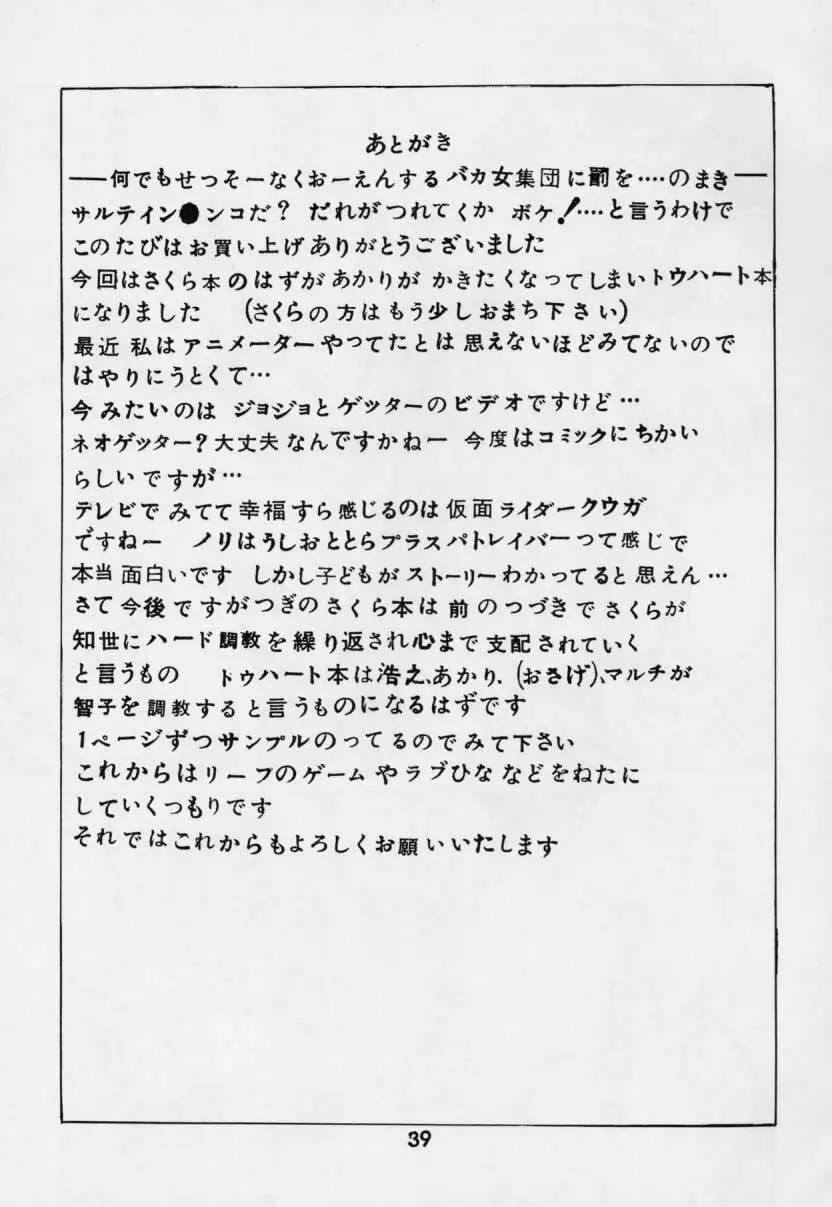 あとがき
──何でもせっそーなくおーえんするバカ女集団に罰を‥‥のまき──
サルティン●ンコだ? だれがつれてくか ボケ!‥‥と言うわけで
このたびはお買い上げありがとうございました
今回はさくら本のはずがあかりが かきたくなってしまいトウハート本
になりました (さくらの方はもう少しおまち下さい)
最近 私はアニメーターやってたとは 思えないほどみてないので
はやりにうとくて…
今 みたいのは ジョジョとゲッターのビデオですけど…
ネオゲッター?大丈夫なんですかねー 今度はコミックにちかい
らしいですが…
テレビで みてて幸福すら感じるのは仮面ライダークウガ
ですねー ノリはうしおととらプラスパトレイバーって感じで
本当 面白いです しかし子どもがストーリーわかってると思えん…
さて今後ですがつぎのさくら本は前のつづきでさくらが
知世にハード調教を繰り返され心まで支配されていく
と言うもの トゥハート本は浩之、あかり、(おさげ)、マルチが
智子を調教すると言うものになるはずです
1ページずつサンプルのってるのでみて下さい
これからはリーフのゲームやラブひななどをねたに
していくつもりです
それではこれからもよろしくお願いいたします
39